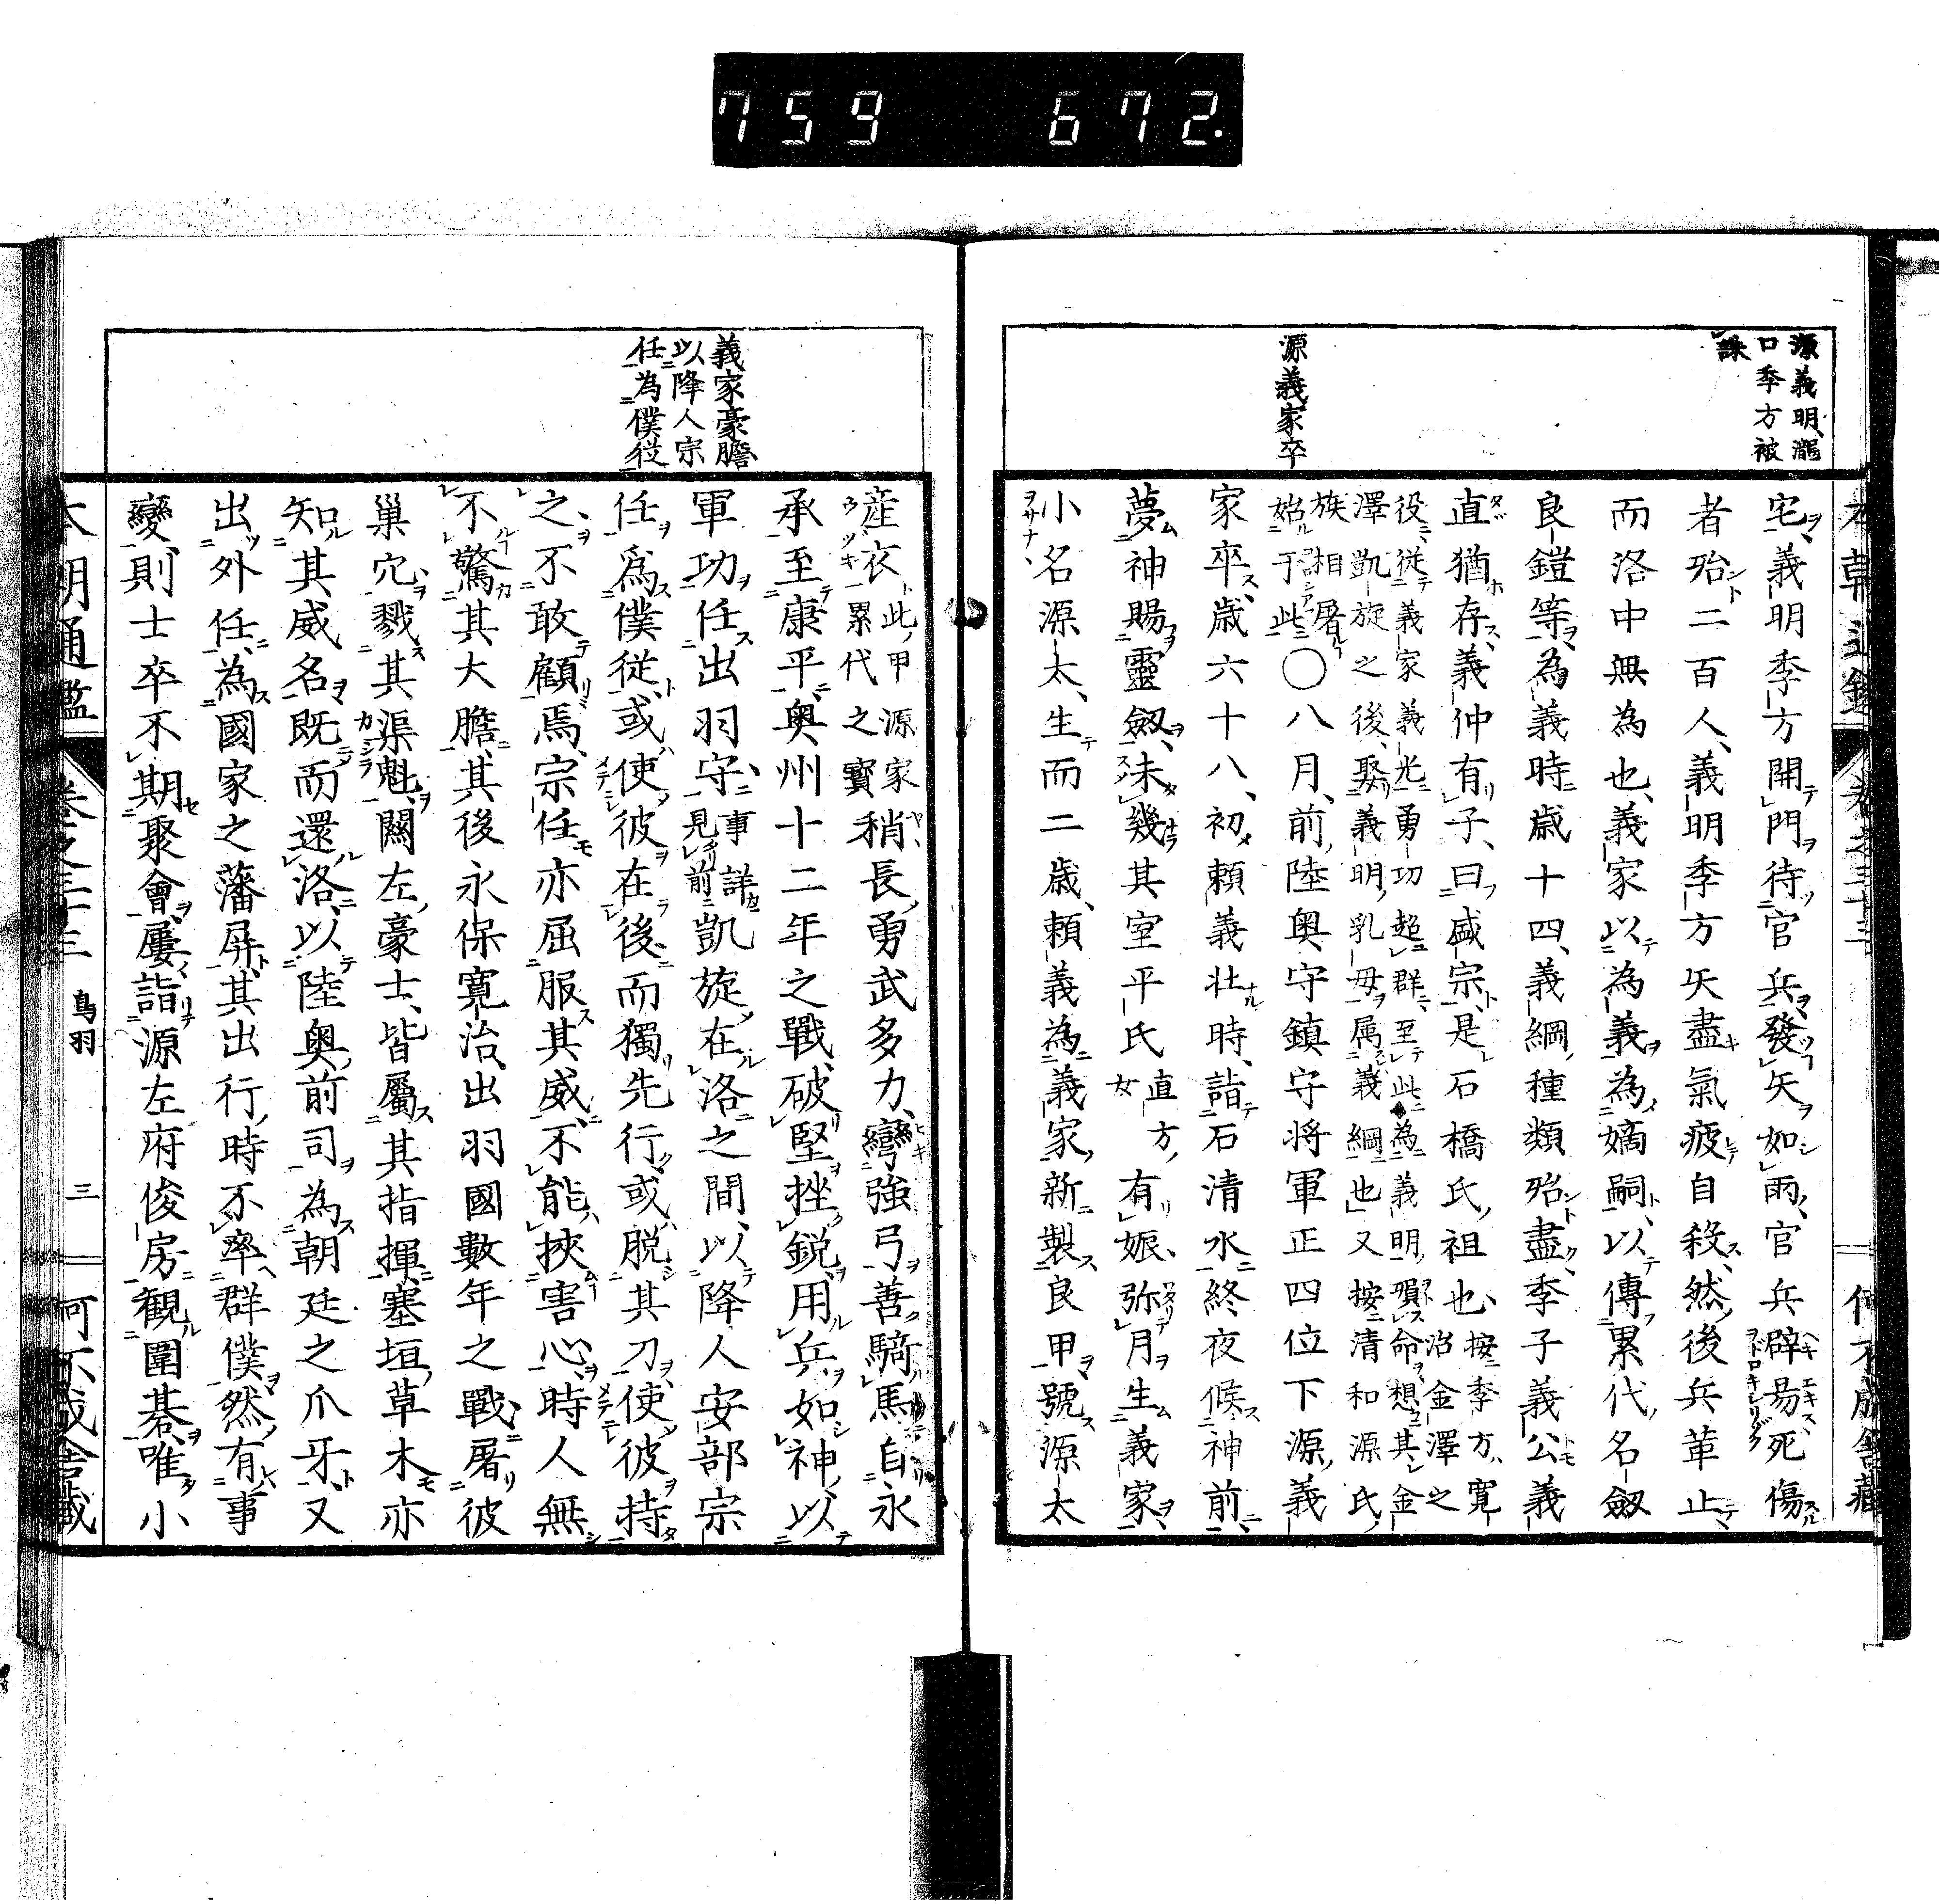 759 672.
源義明瀧
口季方被
誅
源義家卒
本朝通鑑 卷之三十三
宅、義明季方開門待官兵發矢如雨、官兵辟易死傷
者殆二百人、義明季方矢盡氣疲自殺、然後兵革止
而洛中無為也、義家以為義為嫡嗣、以傳累代名劔
良鎧等、為義時歳十四、義綱種類殆盡、季子義公義
直猶存、義仲有子、曰盛宗、是石橋氏祖也、按季方寛
治金澤之
役、從義家義光勇功超群、至此為義明殞命、想其金
澤凱旋之後、娶義明乳母属義綱也、又按清和源氏
族相屠
始于此〇八月、前陸奥守鎮守将軍正四位下源義
家卒、歳六十八、初頼義壮時、詣石清水終夜候神前
夢神賜靈劔、未幾其室平氏直方
女有娠、弥月生義家
小名源太、生而二歳、頼義為義家新製良甲號源太
義家豪膽
以降人宗
任為僕從
産衣此甲源家
累代之寳稍長、勇武多力、彎強弓善騎馬、自永
承至康平、奥州十二年之戰、破堅挫鋭、用兵如神、以
軍功任出羽守、事詳
見前凱旋在洛之間、以降人安部宗
任爲僕從、或使彼在後而獨先行、或脱其刀、使彼持
之、不敢顧焉、宗任亦屈服其威、不能挾害心、時人無
不驚其大膽、其後永保寛治、出羽國數年之戰、屠彼
巢穴、戮其渠魁、關左豪士、皆屬其指揮、塞垣草木亦
知其威名、既而還洛、以陸奥前司為朝廷之爪牙、又
出外任、為國家之藩屏、其出行、時不率群僕、然有事
變則士卒不期聚會、屢詣源左府俊房觀圍碁、唯小
本朝通鑑 卷之三十三 鳥羽 三